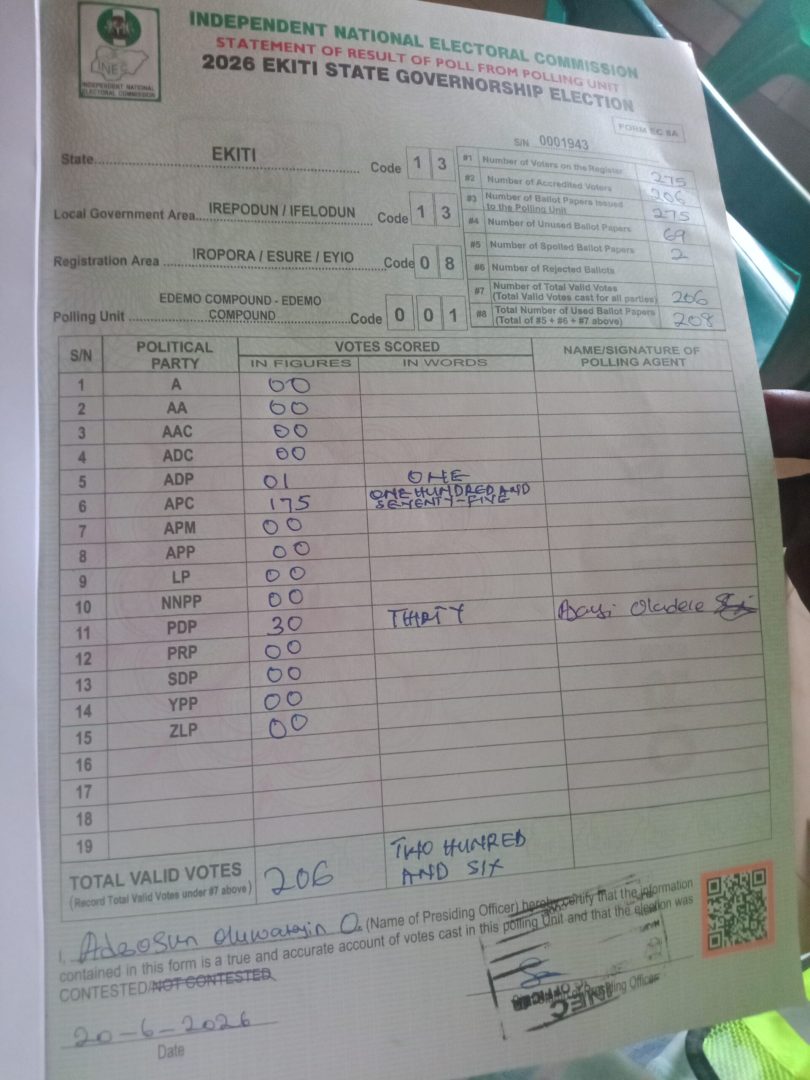 INEC
INDEPENDENT NATIONAL
ELECTORAL COMMISSION
INDEPENDENT NATIONAL ELECTORAL COMMISSION
STATEMENT OF RESULT OF POLL FROM POLLING UNIT
2026 EKITI STATE GOVERNORSHIP ELECTION
FORM EC 8A
S/N 0001943
State EKITI Code 1 3
Local Government Area IREPODUN / IFELODUN Code 1 3
Registration Area IROPORA / ESURE / EYIO Code 0 8
Polling Unit EDEMO COMPOUND - EDEMO
COMPOUND Code 0 0 1
#1 Number of Voters on the Register 275
#2 Number of Accredited Voters 206
#3 Number of Ballot Papers Issued
to the Polling Unit 275
#4 Number of Unused Ballot Papers 69
#5 Number of Spoiled Ballot Papers 2
#6 Number of Rejected Ballots
#7 Number of Total Valid Votes
(Total Valid Votes cast for all parties) 206
#8 Total Number of Used Ballot Papers
(Total of #5 + #6 + #7 above) 208
S/N POLITICAL PARTY VOTES SCORED NAME/SIGNATURE OF POLLING AGENT
IN FIGURES IN WORDS
1 A 00
2 AA 00
3 AAC 00
4 ADC 00
5 ADP 01 ONE
6 APC 175 ONE HUNDRED AND
SEVENTY-FIVE
7 APM 00
8 APP 00
9 LP 00
10 NNPP 00
11 PDP 30 THIRTY Ajayi Oladele
12 PRP 00
13 SDP 00
14 YPP 00
15 ZLP 00
16
17
18
19
TOTAL VALID VOTES 206 TWO HUNRED
(Record Total Valid Votes under #7 above) AND SIX
I, Adeosun O. (Name of Presiding Officer) hereby certify that the information
contained in this form is a true and accurate account of votes cast in this polling Unit and that the election was
CONTESTED/NOT CONTESTED
INEC
20-6-2026
Date